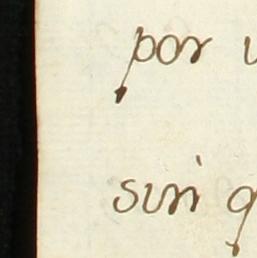 por
sin q